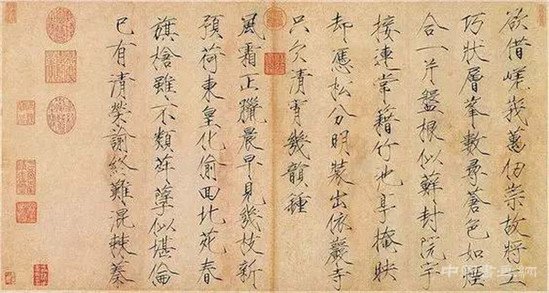 欲借嵯峩萬仞崇故將工
巧狀層峯數尋蒼色如煙
合一片盤根似蘚封院宇
接連常藉竹池亭掩映
却憑松分明裝出依巖寺
只欠清宵幾韻鍾
風霜正臘晨早見幾枝新
預荷東皇化偷回北苑春
旗槍雖不類孽似堪倫
已有清榮諭終難混棘蓁